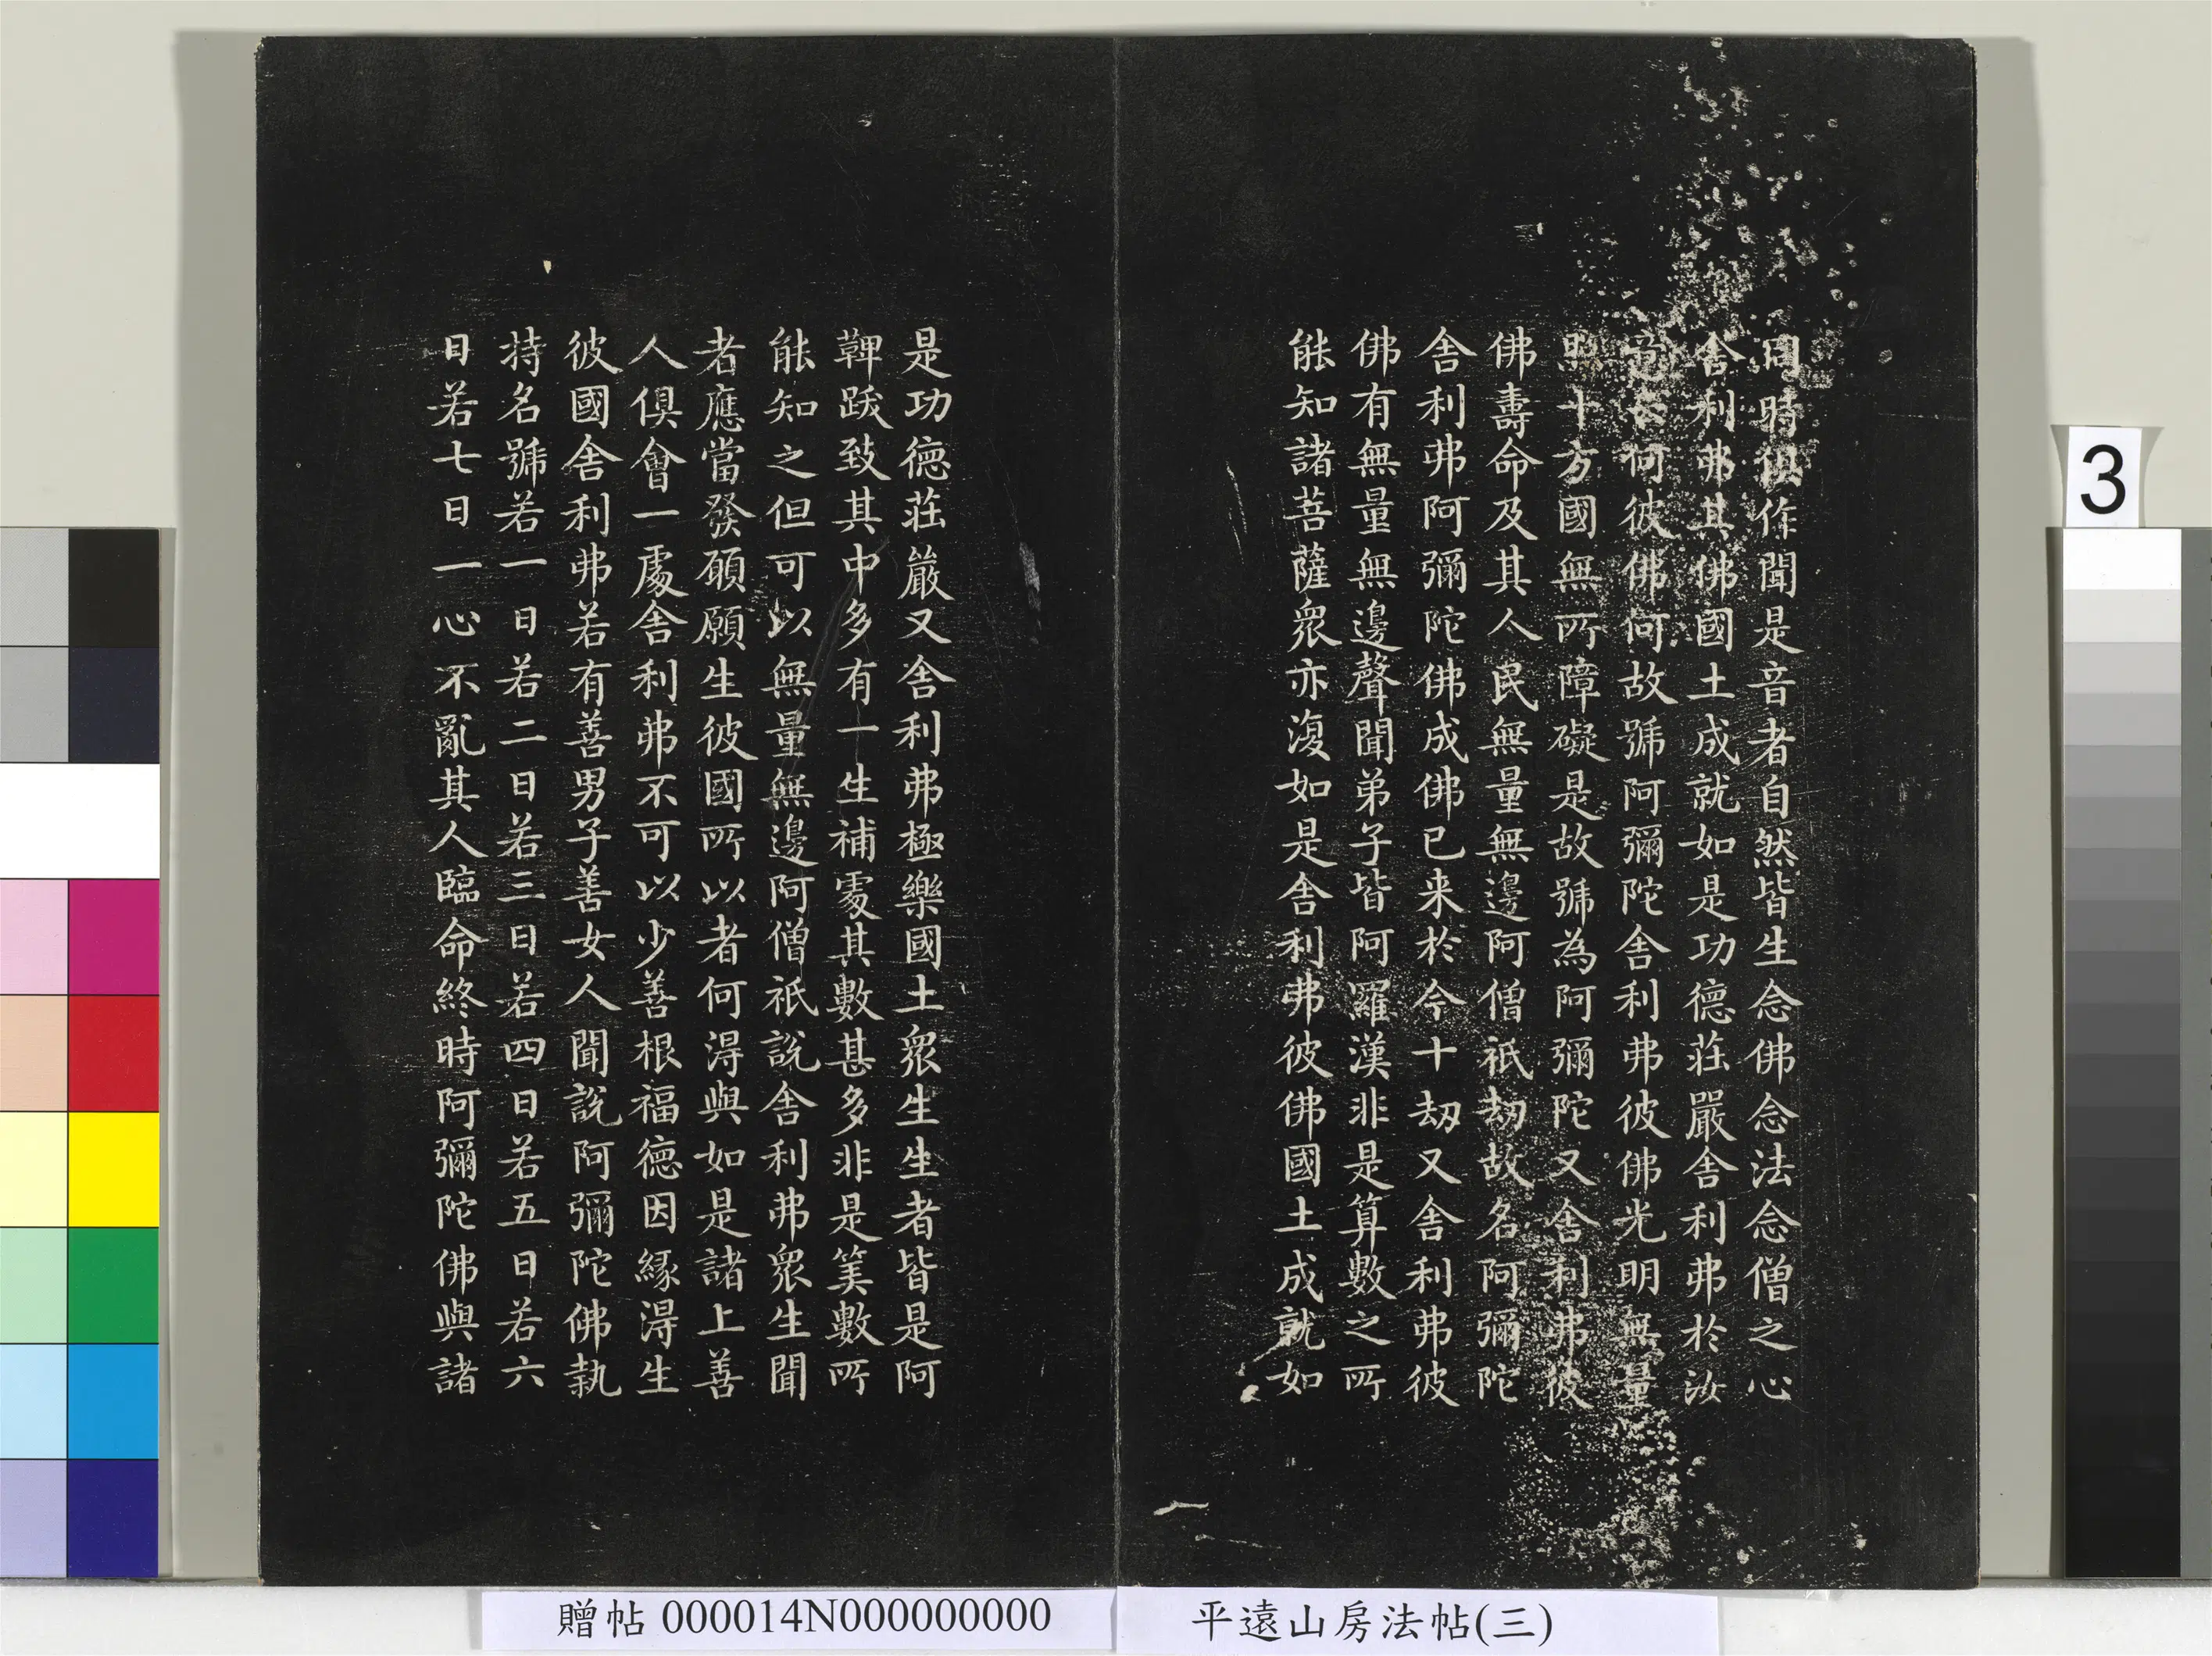 同時俱作聞是音者自然皆生念佛念法念僧之心
舍利弗其佛國土成就如是功德莊嚴舍利弗於汝
意云何彼佛何故號阿彌陀舍利弗彼佛光明無量
照十方國無所障礙是故號為阿彌陀又舍利弗彼
佛壽命及其人民無量無邊阿僧祇劫故名阿彌陀
舍利弗阿彌陀佛成佛已来於今十劫又舍利弗彼
佛有無量無邊聲聞弟子皆阿羅漢非是算數之所
能知諸菩薩衆亦復如是舍利弗彼佛國土成就如
是功德莊嚴又舍利弗極樂國土衆生生者皆是阿
鞞跋致其中多有一生補處其數甚多非是筭數所
能知之但可以無量無邊阿僧祇說舍利弗衆生聞
者應當發願願生彼國所以者何得與如是諸上善
人俱會一處舍利弗不可以少善根福德因緣得生
彼國舍利弗若有善男子善女人聞說阿彌陀佛執
持名號若一日若二日若三日若四日若五日若六
日若七日一心不亂其人臨命終時阿彌陀佛與諸
3
贈帖 000014N000000000
平遠山房法帖(三)